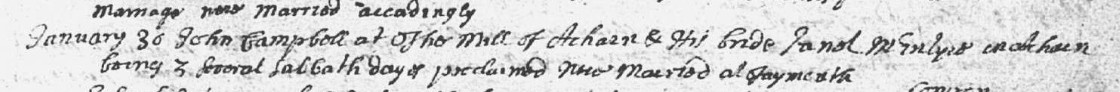 marriage were married accadingly
January 30 John Campbell at The Mill of Acharn & His bride Janet McIntyre in acharn
being 3 several sabbath dayes proclaimed were married at Taymouth